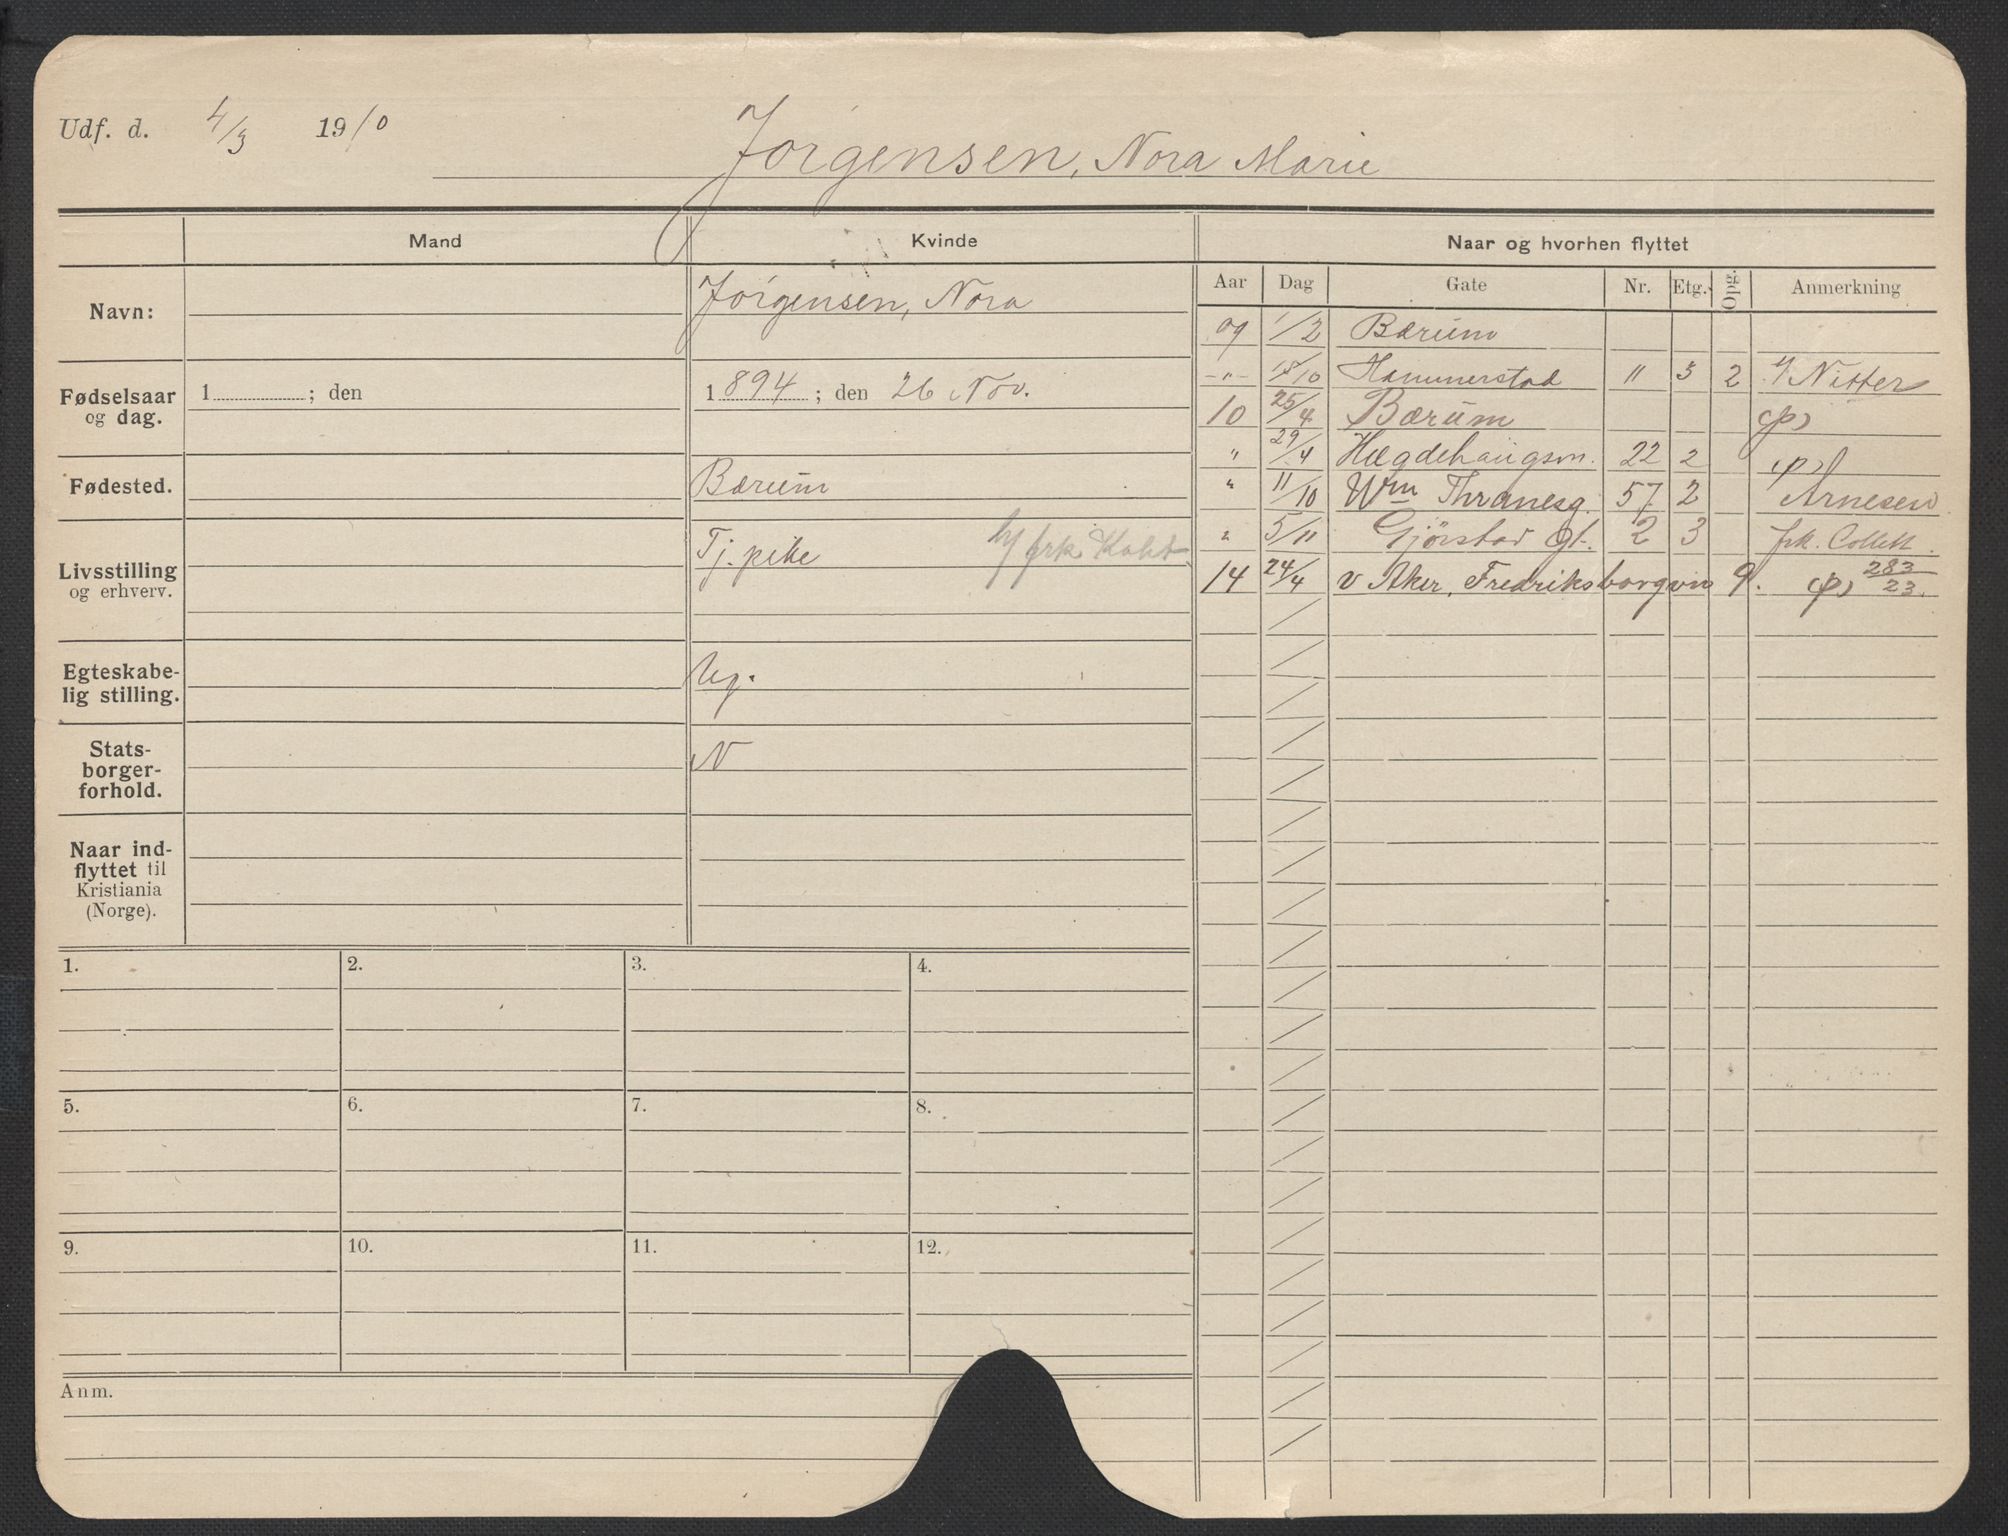 Udf. d. 4/3 1910
Jørgensen, Nora Marie
Mand
Kvinde
Naar og hvorhen flyttet
Navn:
Jørgensen, Nora
Fødselsaar og dag.
1 ; den
1894 ; den 26 Nov.
Fødested.
Bærum
Livsstilling og erhverv.
Tj. pike
frk
Egteskabelig stilling.
Ug.
Statsborgerforhold.
N
Naar indflyttet til Kristiania (Norge).
Aar Dag Gate Nr. Etg. Opg. Anmerkning
09 1/2 Bærum
-"- 15/10 Hammerstad 11 3 2 Nitter
10 25/4 Bærum (p)
" 29/4 Hegdehaugsvn. 22 2 (p)
" 11/10 Wm Thranesg. 57 2 Arnesen
" 5/11 Gjørstad gt. 2 3 frk. Collett.
14 24/4 v Aker, Fredriksborgvn 9. (p) 283/23.
1.
2.
3.
4.
5.
6.
7.
8.
9.
10.
11.
12.
Anm.